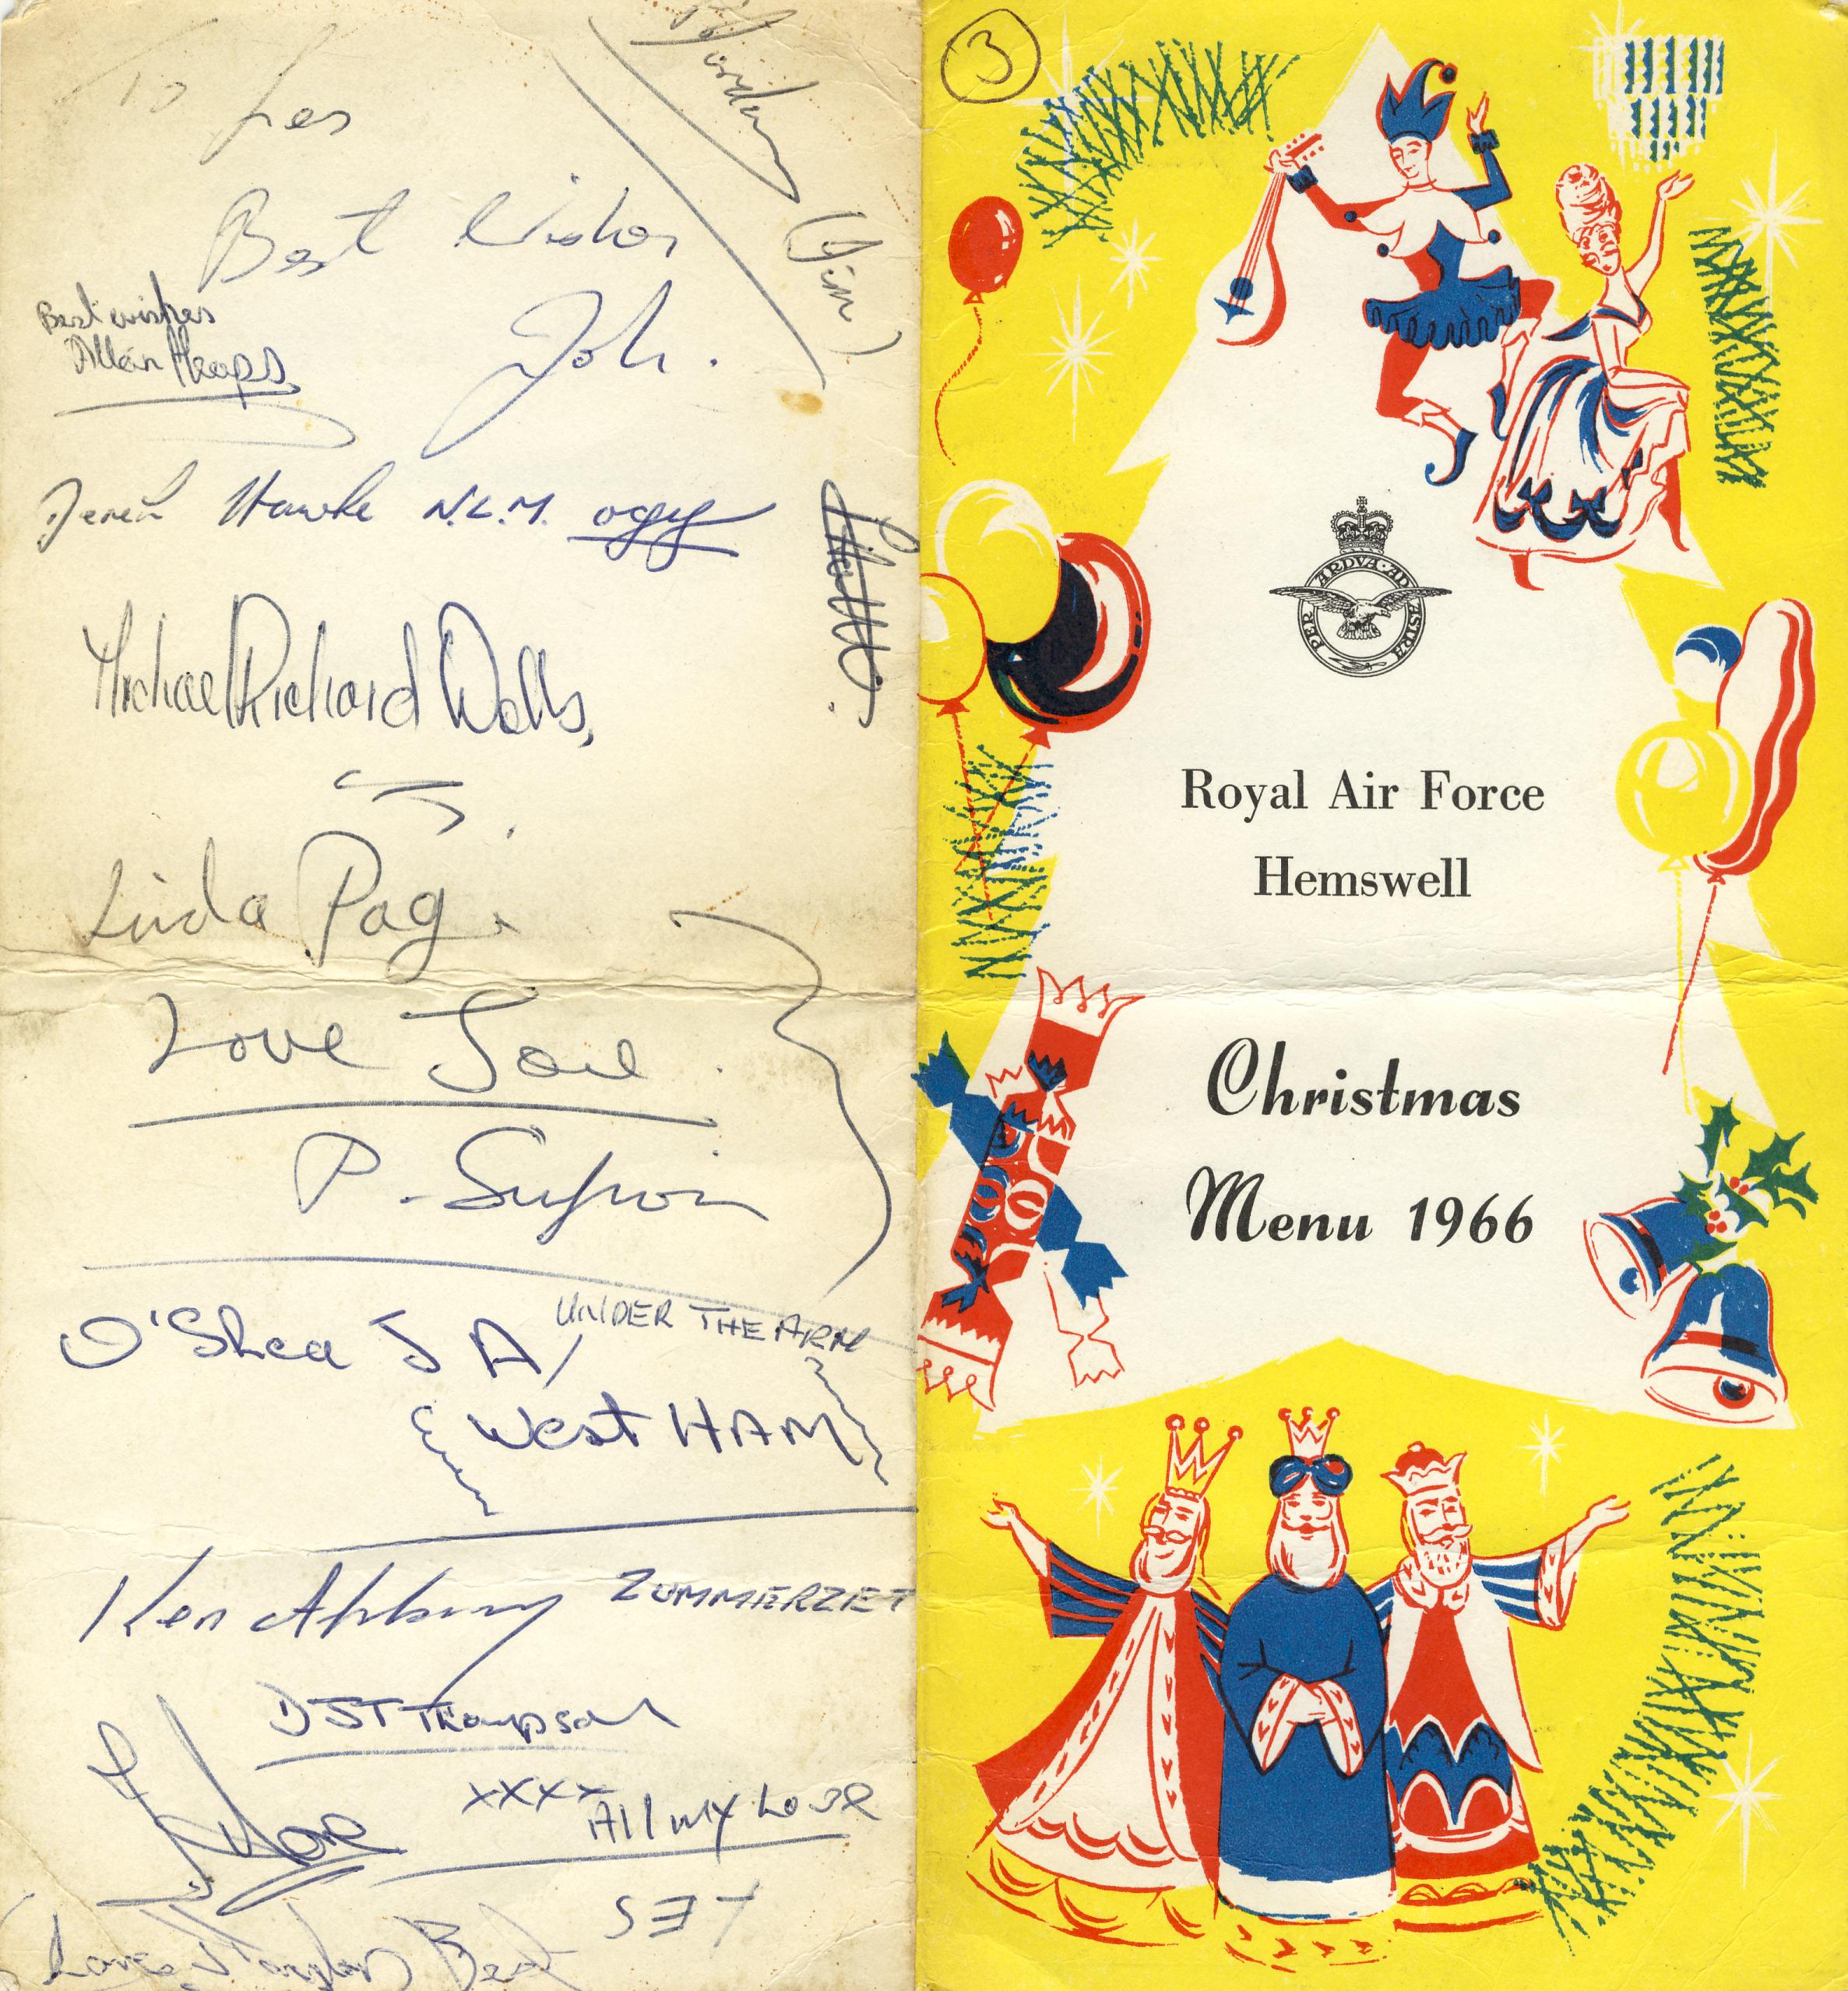 To Les
Best Wishes
Best wishes
Allan Heaps
John.
(Jim)
Derek Hawke N.L.M. oggy
Michael Richard Wells,
Linda Page
Love Joe
P.
O'Shea J A,
UNDER THE ARM
West HAM
Ken ZUMMERZET
DJT Thompson
xxxx
All my Love
YES
Best
3
PER ARDVA AD ASTRA
Royal Air Force
Hemswell
Christmas
Menu 1966